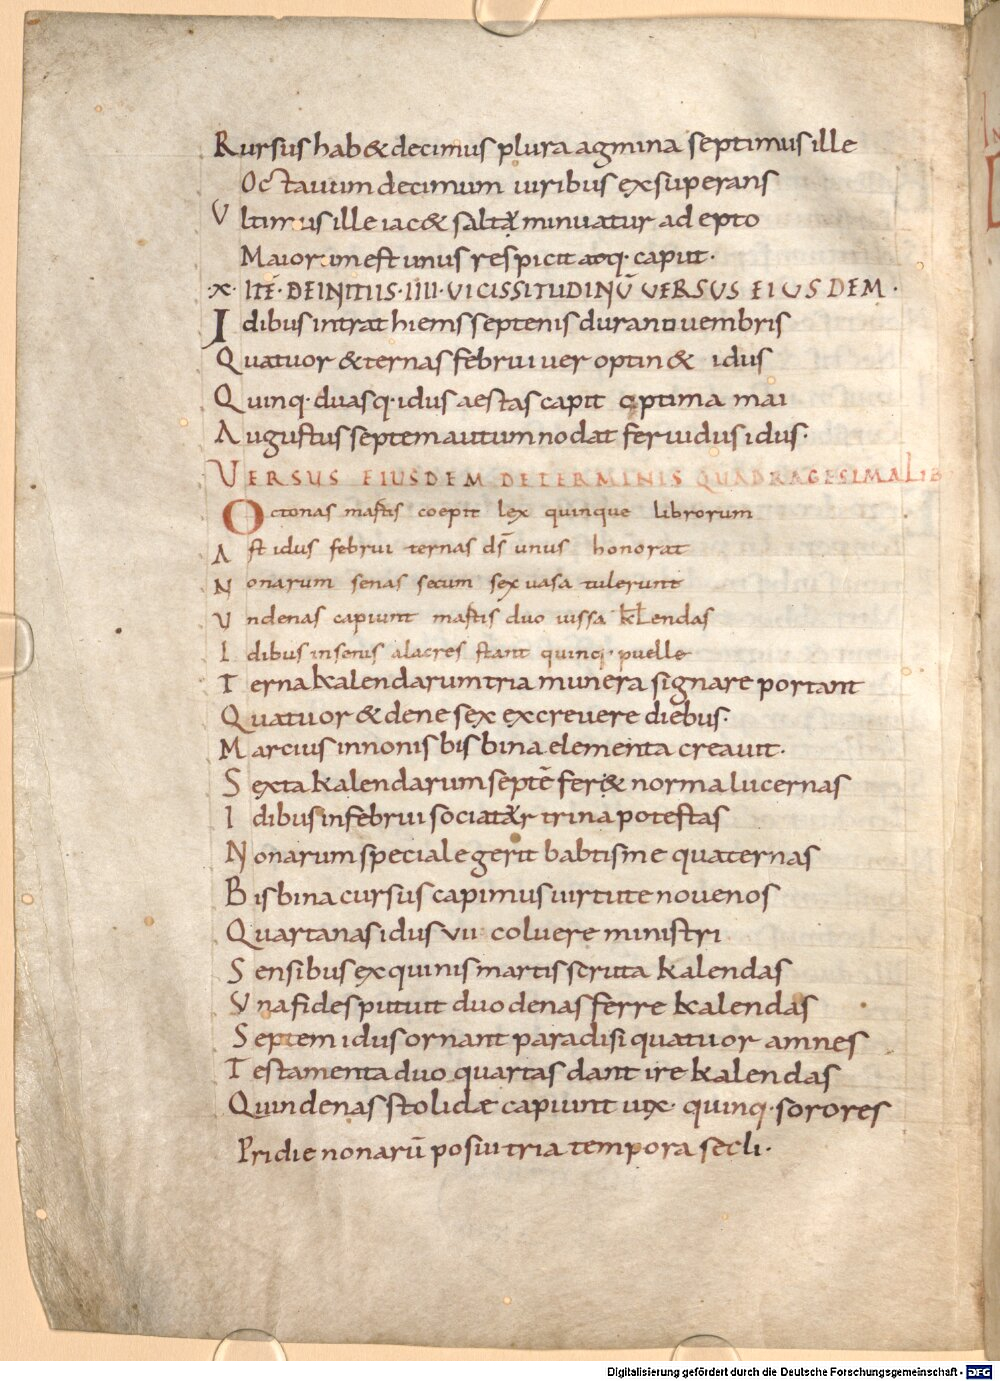 Rursus hab& decimus plura agmina septimus ille
Octauum decimum uiribus exsuperans
Vltimus ille iac& saltẽ minuatur adepto
Maiorum est unus respicit atq· caput·
X· ITẼ· DE INITIIS· IIII· VICISSITUDINŨ VERSUS EIUSDEM·
Idibus intrat hiems septenis dura nouembris
Quatuor & ternas februi uer optin& idus
Quinq· duasq· idus aestas capit optima mai
Augustus septem autumno dat feruidus idus·
VERSUS EIUSDEM DE TERMINIS QUADRAGESIMALIB
Octonas martis coepit lex quinque librorum
Ast idus februi ternas ds̄ unus honorat
Nonarum senas secum sex uasa tulerunt
Vndenas capiunt martis duo iussa klendas
Idibus in senis alacres stant quinq· puelle
Terna kalendarum tria munera signare portant
Quatuor & dene sex excreuere diebus·
Marcius in nonis bis bina elementa creauit·
Sexta kalendarum septẽ fer& norma lucernas
Idibus in februi sociatur trina potestas
Nonarum speciale gerit babtisme quaternas
Bis bina cursus capimus uirtute nouenos
Quartanas idus VII coluere ministri
Sensibus ex quinis martis scruta kalendas
Vna fides putuit duodenas ferre kalendas
Septem idus ornant paradisi quatuor amnes
Testamenta duo quartas dant ire kalendas
Quindenas stolidæ capiunt uix quinq· sorores
Pridie nonarũ posiu tria tempora secli·
Digitalisierung gefördert durch die Deutsche Forschungsgemeinschaft - DFG